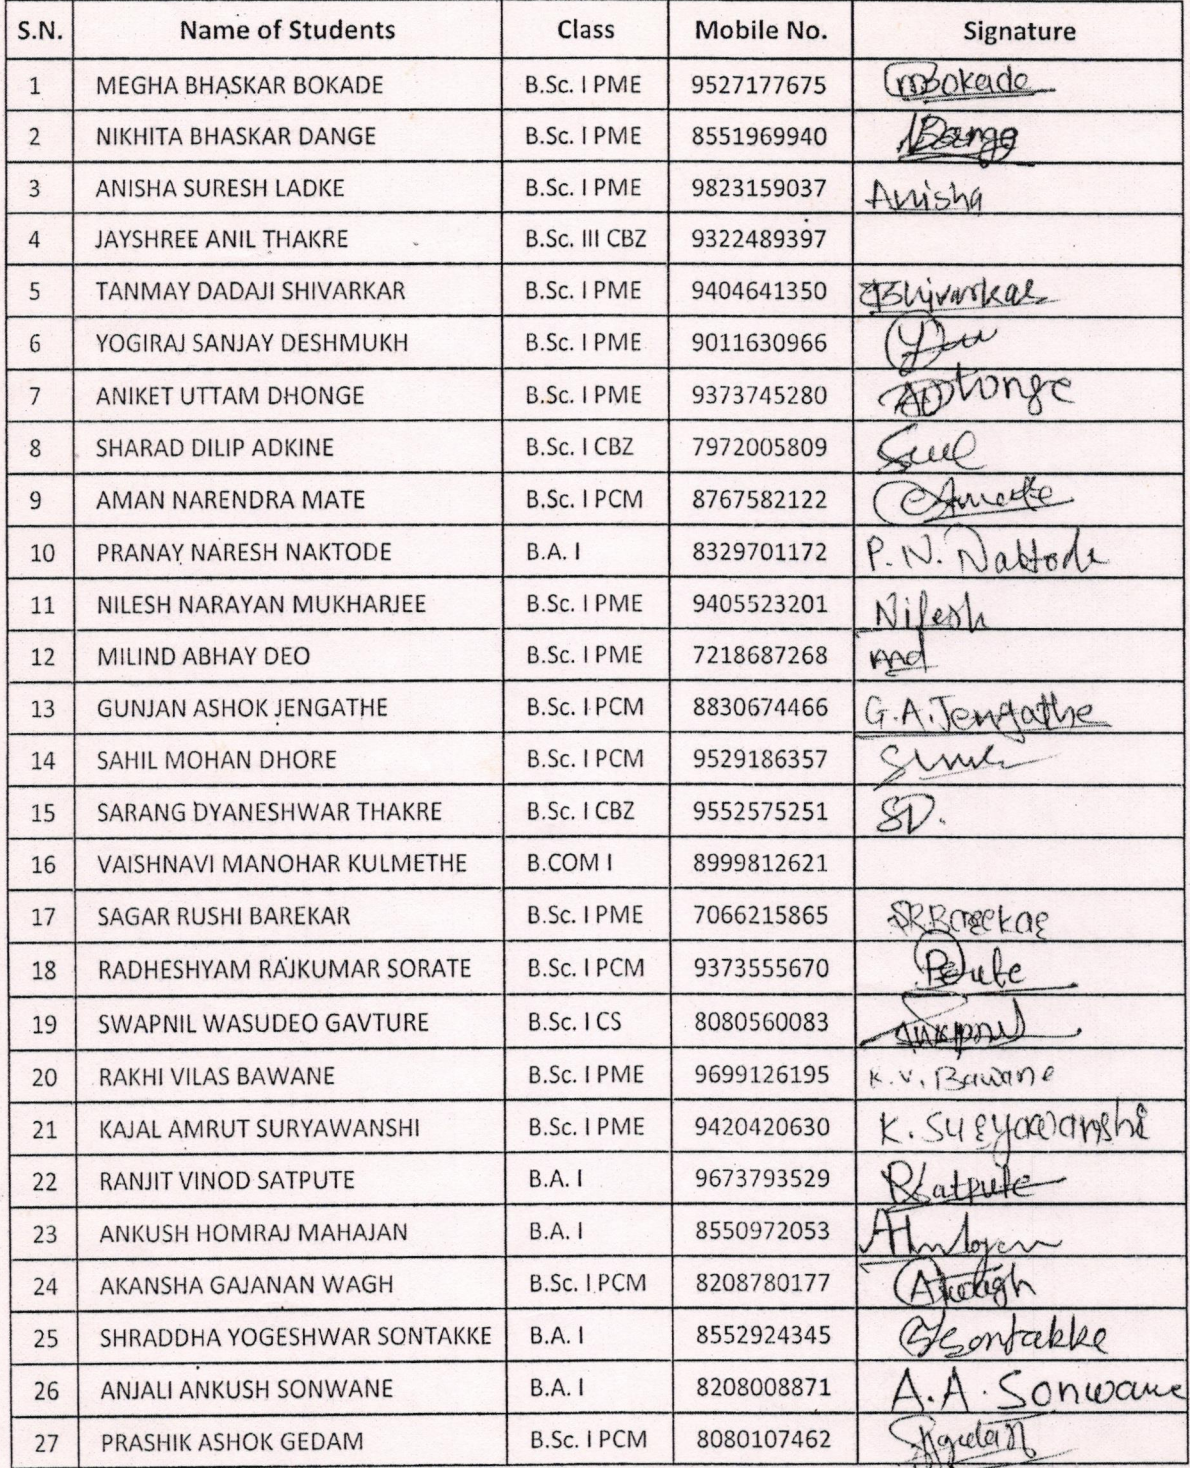 S.N. Name of Students Class Mobile No. Signature
1 MEGHA BHASKAR BOKADE B.Sc. I PME 9527177675 mBokade
2 NIKHITA BHASKAR DANGE B.Sc. I PME 8551969940
3 ANISHA SURESH LADKE B.Sc. I PME 9823159037 Anisha
4 JAYSHREE ANIL THAKRE B.Sc. III CBZ 9322489397
5 TANMAY DADAJI SHIVARKAR B.Sc. I PME 9404641350
6 YOGIRAJ SANJAY DESHMUKH B.Sc. I PME 9011630966
7 ANIKET UTTAM DHONGE B.Sc. I PME 9373745280
8 SHARAD DILIP ADKINE B.Sc. I CBZ 7972005809
9 AMAN NARENDRA MATE B.Sc. I PCM 8767582122
10 PRANAY NARESH NAKTODE B.A. I 8329701172 P. N. Naktode
11 NILESH NARAYAN MUKHARJEE B.Sc. I PME 9405523201 Nilesh
12 MILIND ABHAY DEO B.Sc. I PME 7218687268
13 GUNJAN ASHOK JENGATHE B.Sc. I PCM 8830674466 G.A.Jengathe
14 SAHIL MOHAN DHORE B.Sc. I PCM 9529186357
15 SARANG DYANESHWAR THAKRE B.Sc. I CBZ 9552575251 SD.
16 VAISHNAVI MANOHAR KULMETHE B.COM I 8999812621
17 SAGAR RUSHI BAREKAR B.Sc. I PME 7066215865 SRBarekar
18 RADHESHYAM RAJKUMAR SORATE B.Sc. I PCM 9373555670
19 SWAPNIL WASUDEO GAVTURE B.Sc. I CS 8080560083
20 RAKHI VILAS BAWANE B.Sc. I PME 9699126195 K. V. Bawane
21 KAJAL AMRUT SURYAWANSHI B.Sc. I PME 9420420630 K. Suryawanshi
22 RANJIT VINOD SATPUTE B.A. I 9673793529 RSatpute
23 ANKUSH HOMRAJ MAHAJAN B.A. I 8550972053
24 AKANSHA GAJANAN WAGH B.Sc. I PCM 8208780177
25 SHRADDHA YOGESHWAR SONTAKKE B.A. I 8552924345
26 ANJALI ANKUSH SONWANE B.A. I 8208008871 A.A. Sonwane
27 PRASHIK ASHOK GEDAM B.Sc. I PCM 8080107462